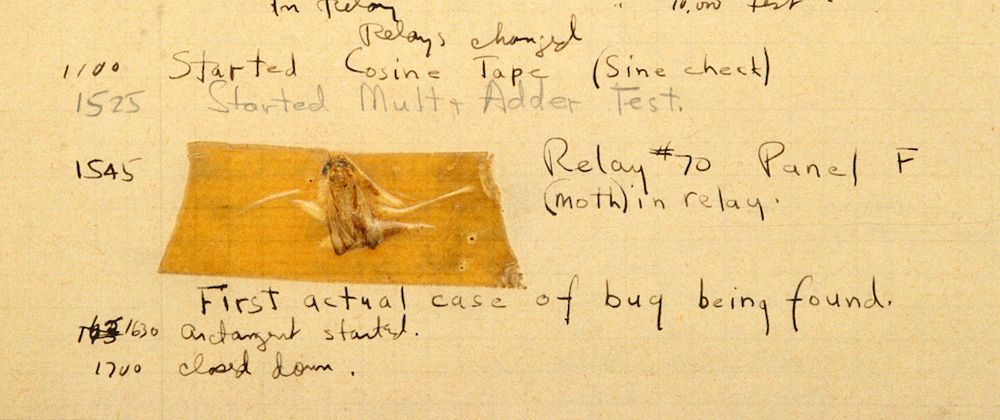 In Relay
" 10.000 test .
Relays changed
1100 Started Cosine Tape (Sine check)
1525 Started Mult+ Adder Test.
1545 Relay #70 Panel F
(moth) in relay.
First actual case of bug being found.
1630 arctangent started.
1700 closed down .